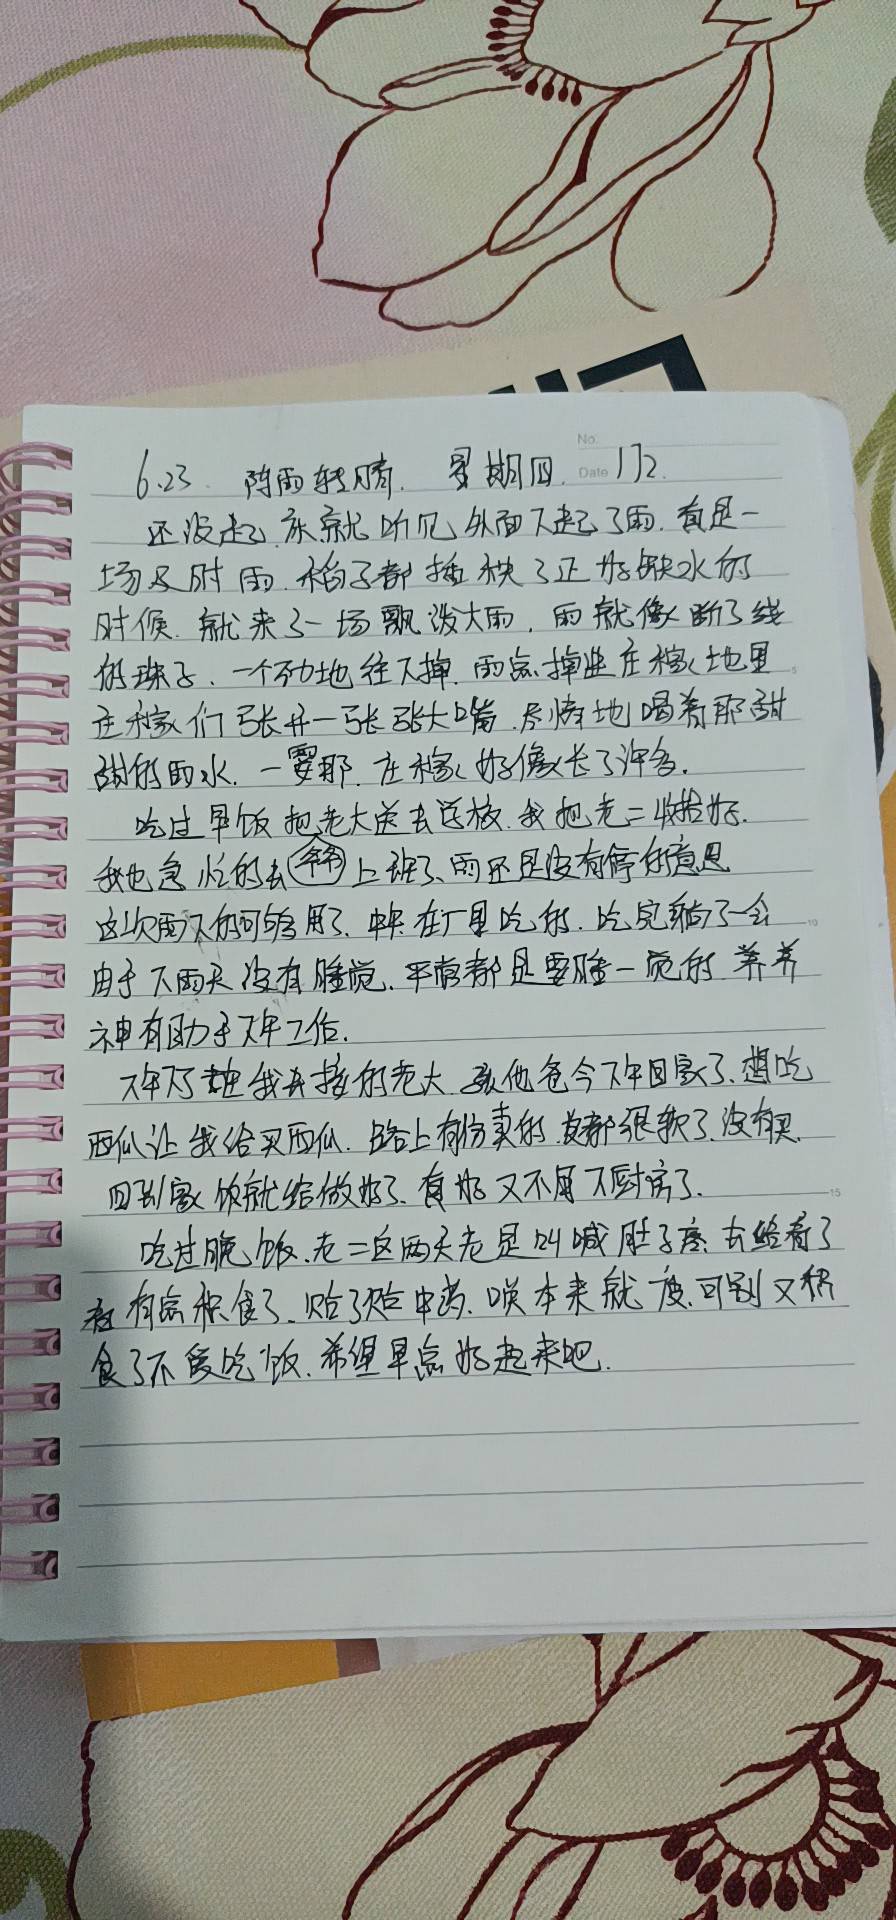 No.
Date
6.23 阵雨转晴. 星期四. 172.
还没起床就听见外面下起了雨.真是一
场及时雨.稻子都插秧了正好缺水的
时候.就来了一场飘泼大雨,雨就像断了线
的珠子、一个劲地往下掉.雨点掉进庄稼地里
庄稼们张开一张张大嘴.尽情地喝着那甜
甜的雨水.一霎那.庄稼好像长了许多.
吃过早饭把老大送去学校.我把老二收拾好.
我也急忙的去 上班了、雨还是没有停的意思
这次雨下的可够用了、中午在厂里吃的.吃完躺了一会
由于下雨天没有睡觉.平常都是要睡一觉的 养养
神有助于下午工作.
下午下了班我去接的老大.孩他爸今下午回家了.想吃
西瓜让我给买西瓜.路上有仿卖的.都很软了.没有买.
回到家饭就给做好了、真好又不用下厨房了.
吃过晚饭.老二这两天老是叫喊肚子疼.去给看了
有点积食了.贴了贴中药.唉本来就瘦.可别又积
食了不爱吃饭.希望早点好起来吧.
5
10
15